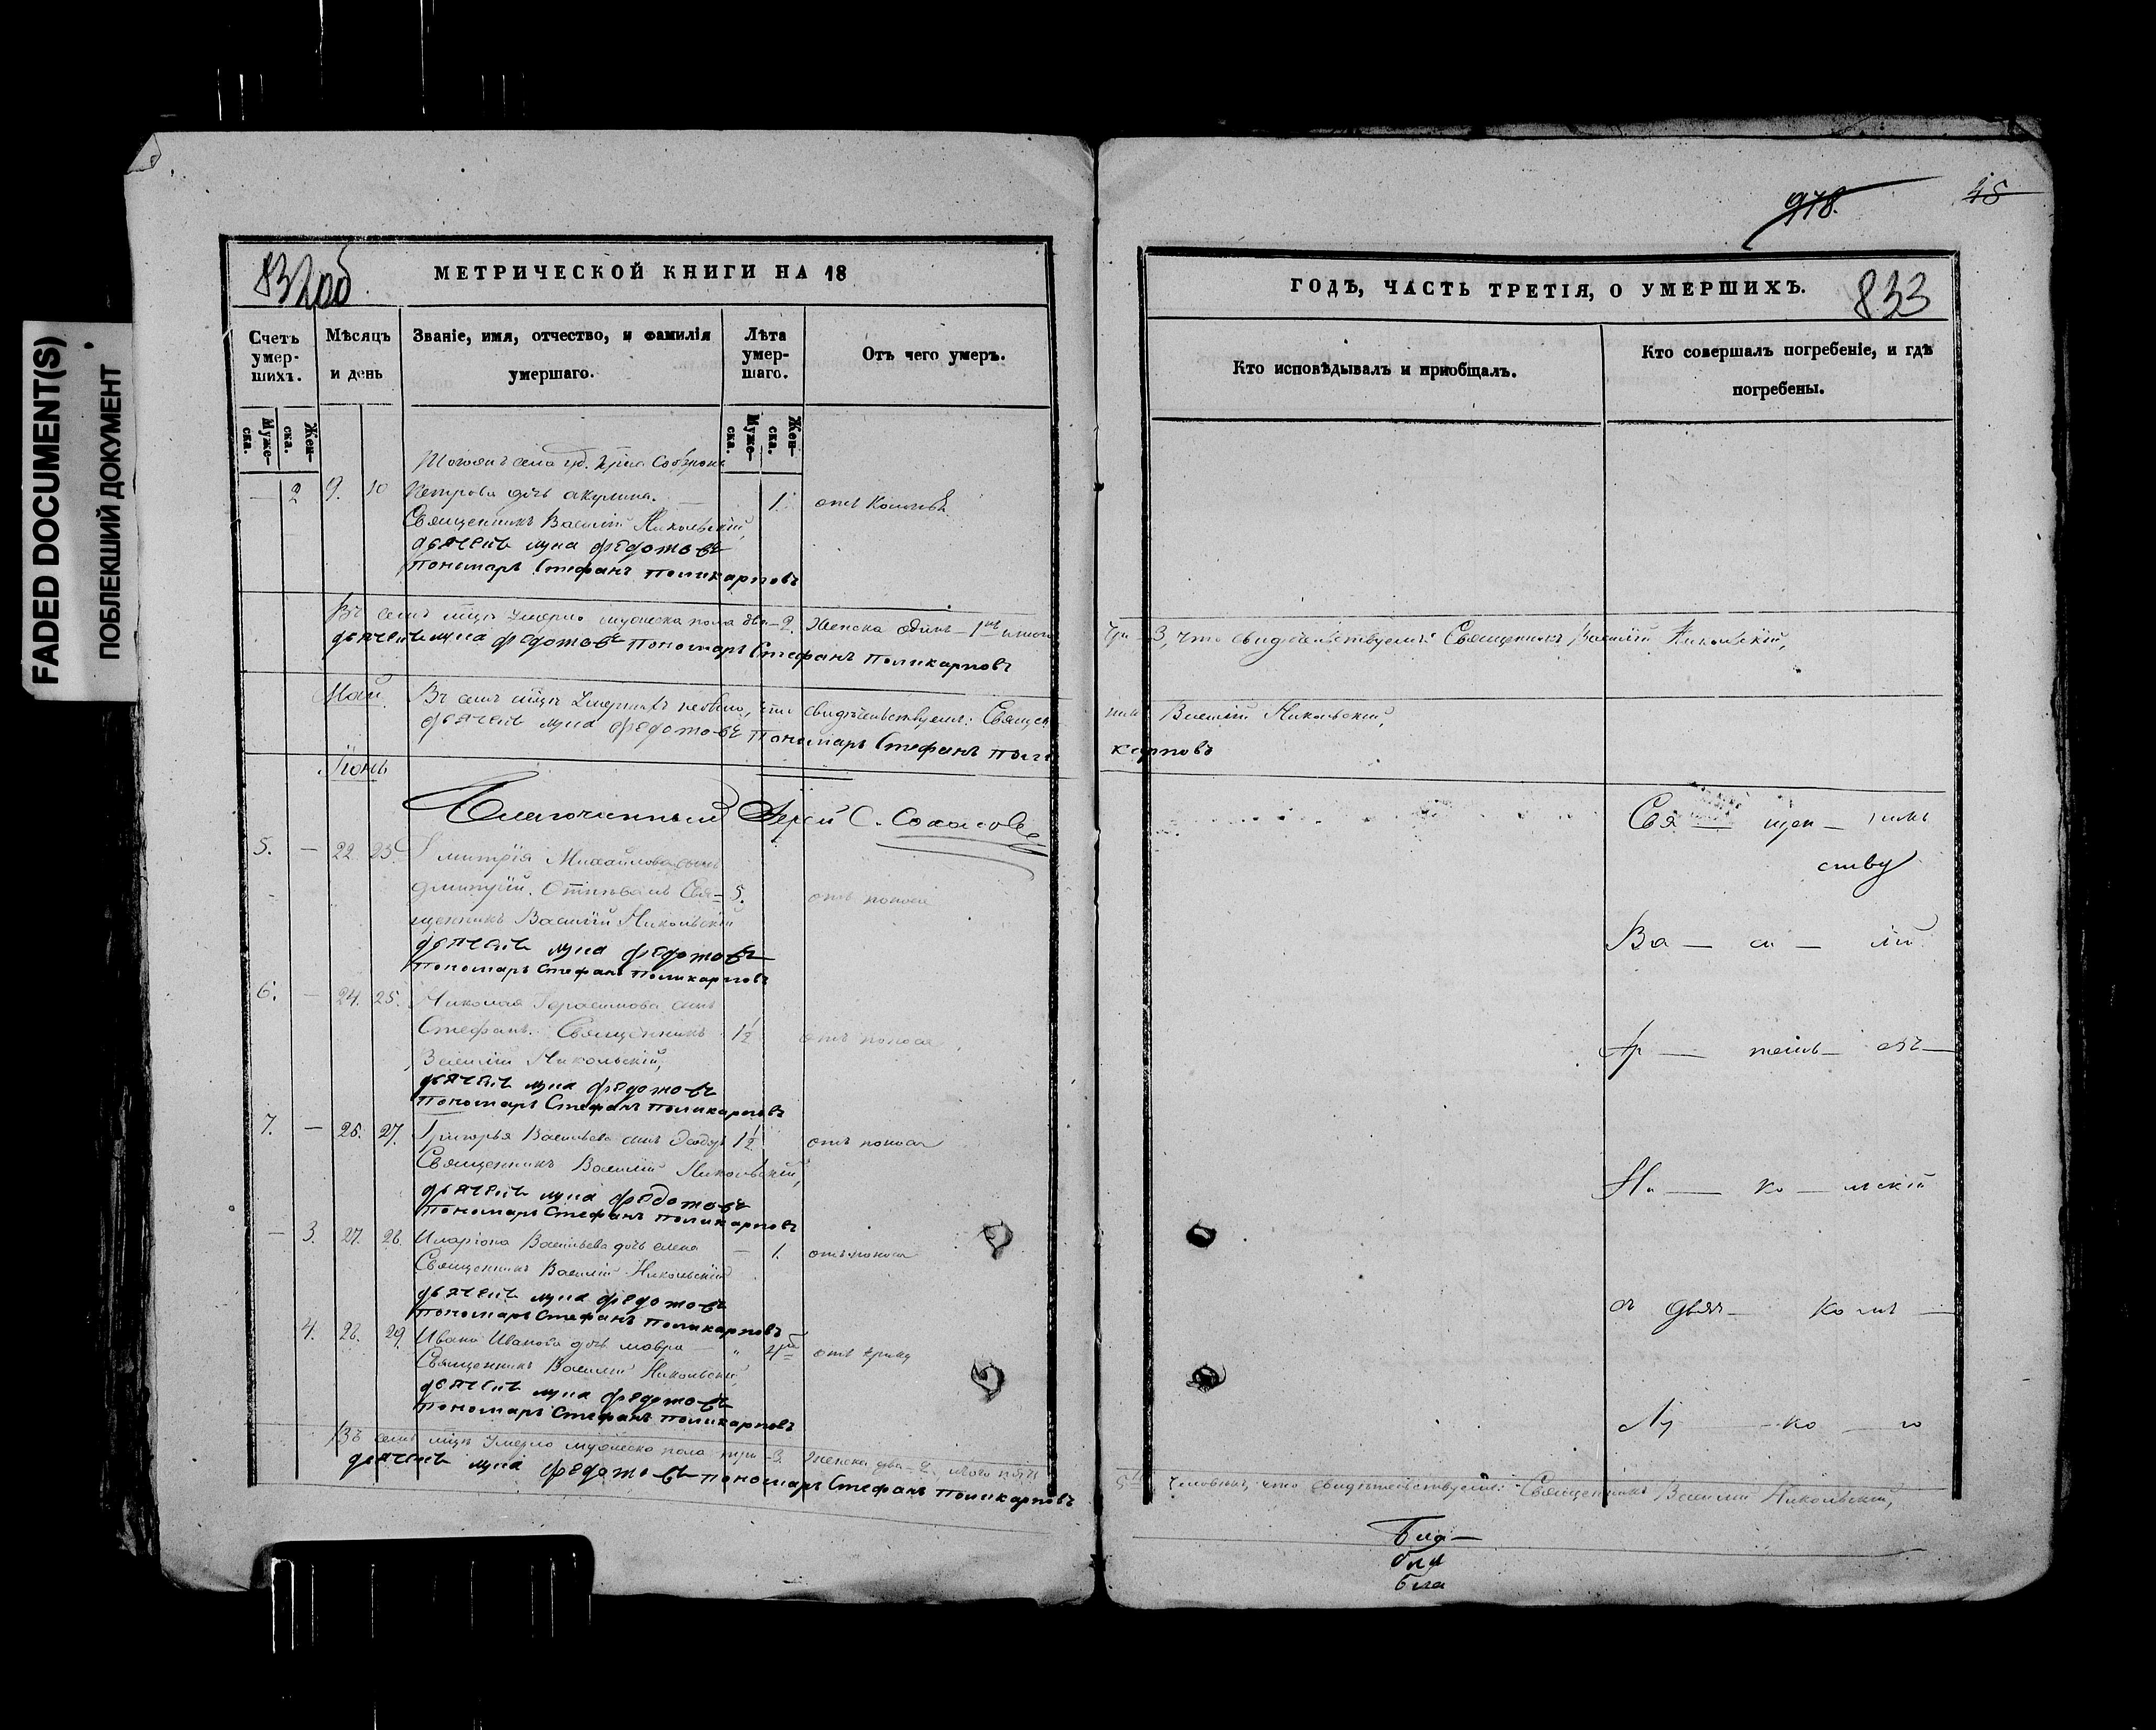 FADED DOCUMENT(S)
ПОБЛЕКШИЙ ДОКУМЕНТ
832 об
МЕТРИЧЕСКОЙ КНИГИ НА 18
Счетъ умер-шихъ.
Мѣсяцъ и день
Званіе, имя, отчество, и фамилія умершаго.
Лѣта умер-шаго.
Отъ чего умеръ.
Муже-ска.
Жен-ска.
Муже-ска.
Жен-ска.
села
2 9. 10 Петрова дочь Акулина. 1. отъ
Священникъ Василій Никольскій,
дьячекъ Лука Федотовъ
пономарь Стефанъ Поликарповъ
Въ семъ мцѣ умерло мужеска пола два - 2. Женска одинъ - 1 итого
дьячекъ Лука Федотовъ пономарь Стефанъ Поликарповъ
Май. Въ семъ мцѣ умершихъ небыло, что свидѣтельствуемъ: Священ
дьячекъ Лука Федотовъ пономарь Стефанъ Поли
Іюнь
Благочинный Іерей С. Соколовъ
5. — 22. 23. Дмитрія Михайлова сынъ
Дмитрій. Отпѣвалъ Свя= 5. отъ поноса
щенникъ Василій Никольскій
дьячекъ Лука Федотовъ
пономарь Стефанъ Поликарповъ
6. — 24. 25. Николая Герасимова сынъ
Стефанъ. Священникъ 1½ отъ поноса
Василій Никольскій,
дьячекъ Лука Федотовъ
пономарь Стефанъ Поликарповъ
7. — 26. 27. Григорья Васильева сынъ 1½ отъ поноса
Священникъ Василій Никольскій,
дьячекъ Лука Федотовъ
пономарь Стефанъ Поликарповъ
— 3. 27. 28. Иларіона Васильева дочь Елена — 1. отъ поноса
Священникъ Василій Никольскій
дьячекъ Лука Федотовъ
пономарь Стефанъ Поликарповъ
4. 28. 29. Ивана Иванова дочь Мавра отъ
Священникъ Василій Никольскій,
дьячекъ Лука Федотовъ
пономарь Стефанъ Поликарповъ
Въ семъ мцѣ умерло мужеска пола три - 3. Женска два - 2. итого пять
дьячекъ Лука Федотовъ пономарь Стефанъ Поликарповъ
978.
45
ГОДѢ, ЧАСТЬ ТРЕТІЯ, О УМЕРШИХЪ.
833
Кто исповѣдывалъ и пріобщалъ.
Кто совершалъ погребеніе, и гдѣ погребены.
три - 3, что свидѣтельствуемъ: Священникъ Василій Никольскій,
никъ Василій Никольскій,
карповъ
Свя — щен — никъ
Ва — си — лій
Ни — ко — льскій
съ дьяч — комъ —
Лу — ко — ю
5 человѣкъ, что свидѣтельствуемъ: Священникъ Василій Никольскій,